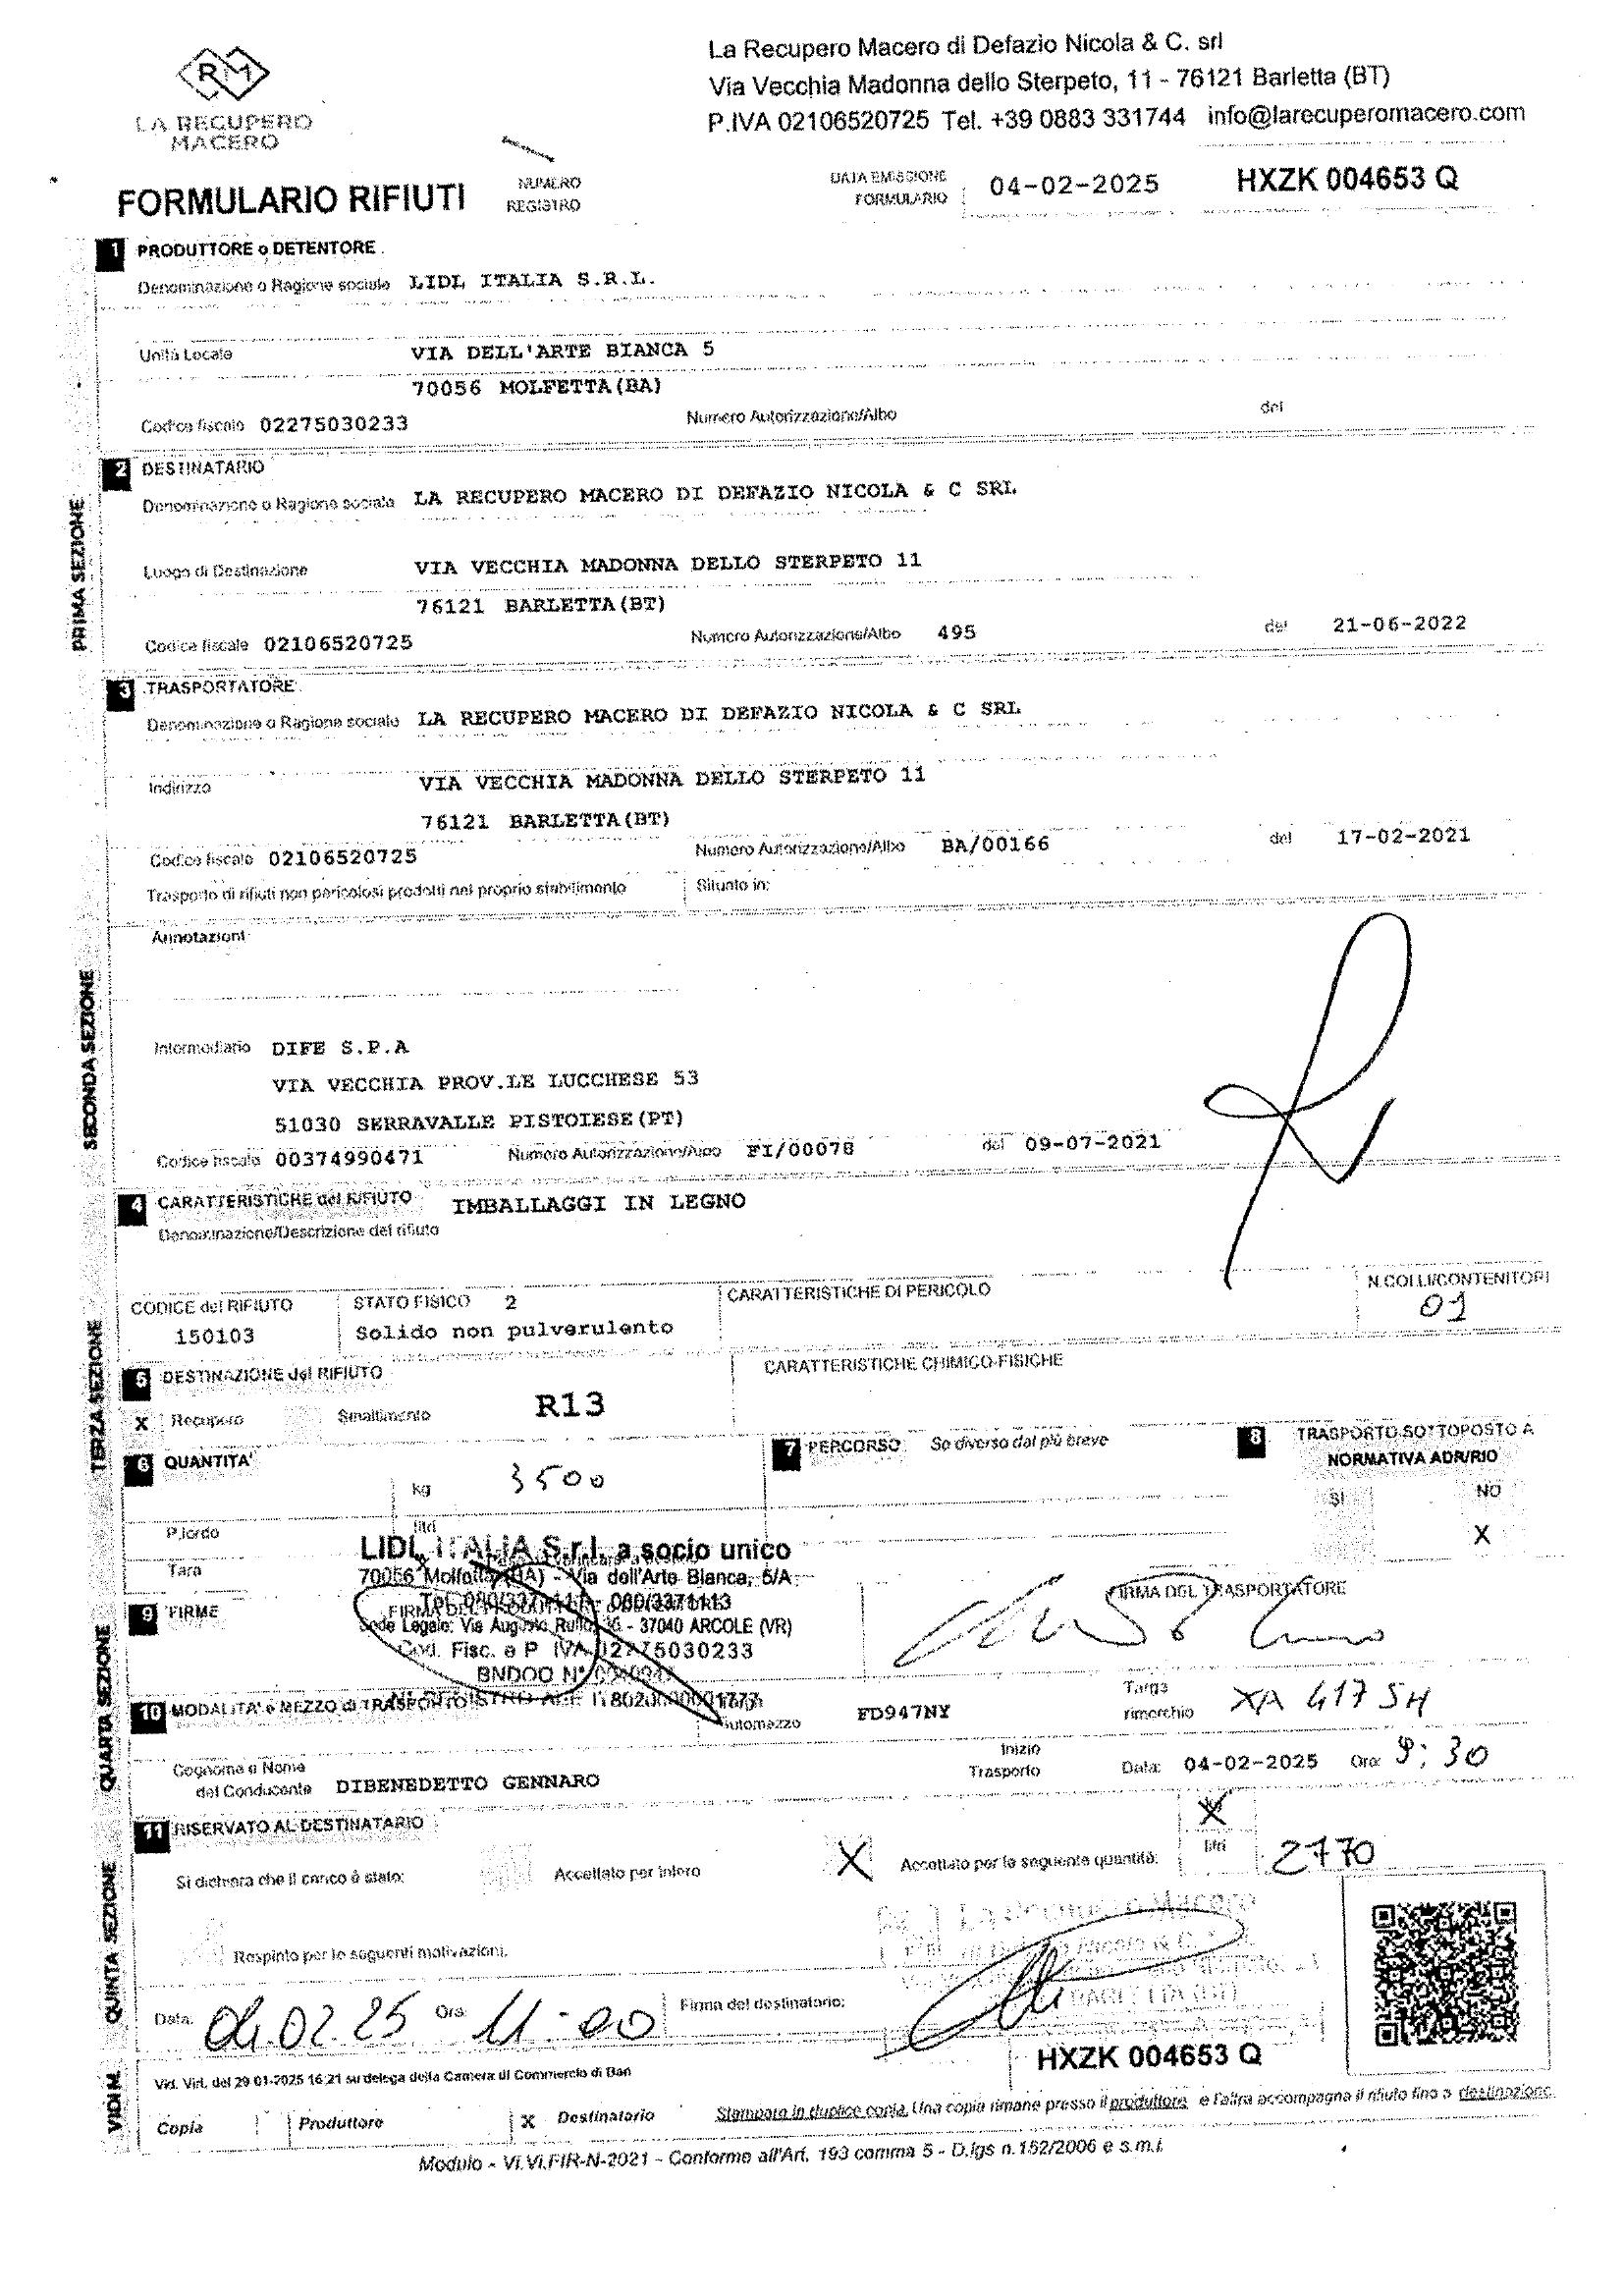 RM
LA RECUPERO
MACERO
La Recupero Macero di Defazio Nicola & C. srl
Via Vecchia Madonna dello Sterpeto, 11 - 76121 Barletta (BT)
P.IVA 02106520725 Tel. +39 0883 331744 info@larecuperomacero.com
FORMULARIO RIFIUTI
NUMERO
REGISTRO
DATA EMISSIONE
FORMULARIO
04-02-2025
HXZK 004653 Q
1 PRODUTTORE o DETENTORE
Denominazione o Ragione sociale LIDL ITALIA S.R.L.
Unità Locale VIA DELL'ARTE BIANCA 5
70056 MOLFETTA(BA)
Codice fiscale 02275030233 Numero Autorizzazione/Albo del
PRIMA SEZIONE
2 DESTINATARIO
Denominazione o Ragione sociale LA RECUPERO MACERO DI DEFAZIO NICOLA & C SRL
Luogo di Destinazione VIA VECCHIA MADONNA DELLO STERPETO 11
76121 BARLETTA(BT)
Codice fiscale 02106520725 Numero Autorizzazione/Albo 495 del 21-06-2022
3 TRASPORTATORE
Denominazione o Ragione sociale LA RECUPERO MACERO DI DEFAZIO NICOLA & C SRL
Indirizzo VIA VECCHIA MADONNA DELLO STERPETO 11
76121 BARLETTA(BT)
Codice fiscale 02106520725 Numero Autorizzazione/Albo BA/00166 del 17-02-2021
Trasporto di rifiuti non pericolosi prodotti nel proprio stabilimento Situato in:
SECONDA SEZIONE
Annotazioni
Intermediario DIFE S.P.A
VIA VECCHIA PROV.LE LUCCHESE 53
51030 SERRAVALLE PISTOIESE(PT)
Codice fiscale 00374990471 Numero Autorizzazione/Albo FI/00078 del 09-07-2021
TERZA SEZIONE
4 CARATTERISTICHE del RIFIUTO IMBALLAGGI IN LEGNO
Denominazione/Descrizione del rifiuto
CODICE del RIFIUTO STATO FISICO 2 CARATTERISTICHE DI PERICOLO N.COLLI/CONTENITORI
150103 Solido non pulverulento 01
5 DESTINAZIONE del RIFIUTO CARATTERISTICHE CHIMICO-FISICHE
X Recupero Smaltimento R13
6 QUANTITA' kg 3500
7 PERCORSO Se diverso dal più breve
8 TRASPORTO SOTTOPOSTO A
NORMATIVA ADR/RID
SI NO
X
P.lordo litri
Tara
LIDL ITALIA S.r.l. a socio unico
70056 Molfetta (BA) - Via dell'Arte Bianca, 5/A
080/3371113
Sede Legale: Via Augusto Ruffo, 36 - 37040 ARCOLE (VR)
Cod. Fisc. e P. IVA 02275030233
QUARTA SEZIONE
9 FIRME FIRMA DEL TRASPORTATORE
10 MODALITA' e MEZZO di TRASPORTO
automezzo FD947NY
Targa
rimorchio XA 417 SH
Cognome e Nome
del Conducente DIBENEDETTO GENNARO
Inizio
Trasporto Data: 04-02-2025 Ora: 9:30
QUINTA SEZIONE
11 RISERVATO AL DESTINATARIO
Si dichiara che il carico è stato: Accettato per intero X Accettato per la seguente quantità: X litri 2770
Respinto per le seguenti motivazioni:
Data: 04.02.25 Ora: 11:00 Firma del destinatario:
HXZK 004653 Q
VIDIM.
Vid. Virt. del 29-01-2025 16:21 su delega della Camera di Commercio di Bari
Copia Produttore X Destinatario
Stampare in duplice copia. Una copia rimane presso il produttore e l'altra accompagna il rifiuto fino a destinazione.
Modulo - Vi.Vi.FIR-N-2021 - Conforme all'Art. 193 comma 5 - D.lgs n.152/2006 e s.m.i.